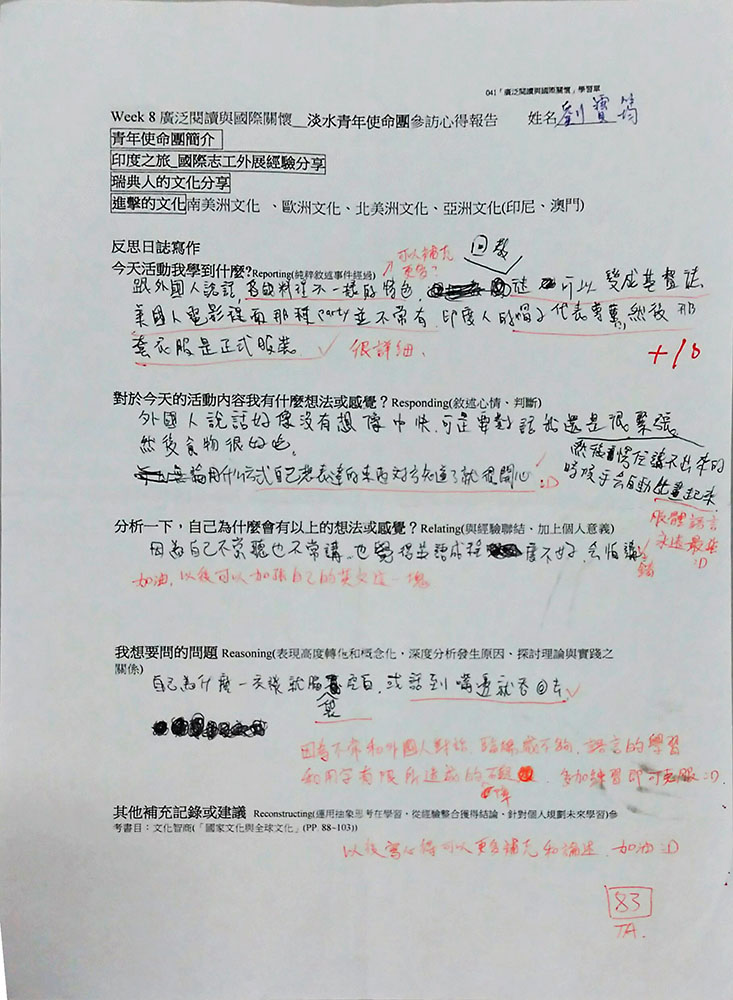 041「廣泛閱讀與國際關懷」學習單
Week 8 廣泛閱讀與國際關懷__淡水青年使命團參訪心得報告 姓名 劉寶筠
青年使命團簡介
印度之旅_國際志工外展經驗分享
瑞典人的文化分享
進擊的文化南美洲文化 、歐洲文化、北美洲文化、亞洲文化(印尼、澳門)
反思日誌寫作
回教
今天活動我學到什麼?Reporting(純粹敘述事件經過)
可以補充更多?
跟外國人說話,各國料理不一樣的特色,徒可以變成基督徒
美國人電影裡面那種party並不常有,印度人的帽子代表尊重,然後那
套衣服是正式服裝
很詳細、
+10
對於今天的活動內容我有什麼想法或感覺?Responding(敘述心情、判斷)
外國人說話好像沒有想像中快,可是要對話我還是很緊張
然後食物很好吃
論用什麼方式自己想表達的東西對方知道了就很開心 :D
然後言講不出來的
時候手會自動比畫起來
肢體語言
永遠最
:D
分析一下,自己為什麼會有以上的想法或感覺?Relating(與經驗聯結、加上個人意義)
因為自己不常聽也不常講,也覺得英語成程度不好,會怕講
錯
加油,以後可以加強自己的英文這一塊
我想要問的問題 Reasoning(表現高度轉化和概念化,深度分析發生原因、探討理論與實踐之
關係)
自己為什麼一緊張就腦裏空白,或話到嘴邊就吞回去
因為不常和外國人對話,不夠,語言的學習
和用字有限所造成的,多加練習即可克服 :D
其他補充記錄或建議 Reconstructing(運用抽象思考在學習,從經驗整合獲得結論,針對個人規劃未來學習)參
考書目:文化智商(「國家文化與全球文化」(PP. 88~103))
以後寫心得可以更多補充和論述,加油 :D
83
TA.